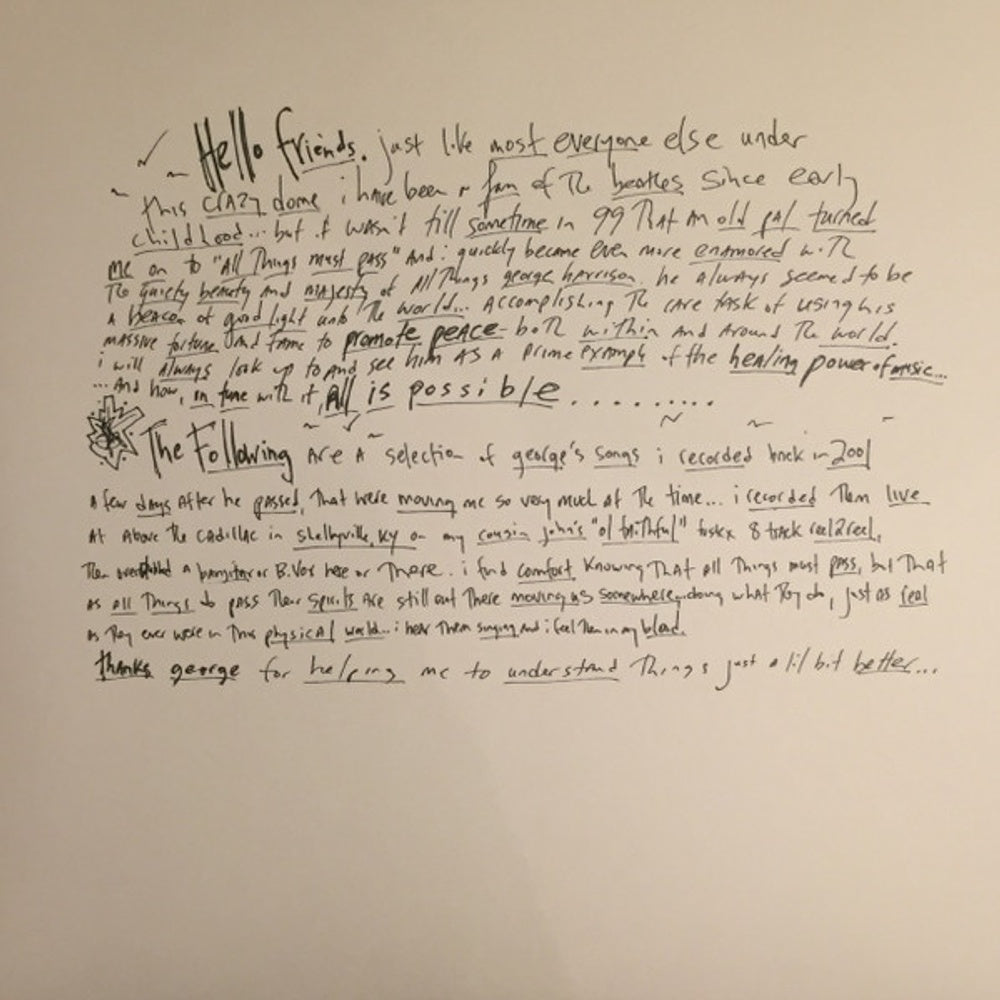 Hello friends. just like most everyone else under
this crazy dome i have been a fan of The beatles since early
childhood... but it wasn't till sometime in 99 That an old pal turned
me on to "All Things must pass" And i quickly became even more enamored with
The quiety beauty and majesty of All Things george harrison. he always seemed to be
a beacon of good light unto The world... Accomplishing The rare task of using his
massive fortune And fame to promote peace - both within and Around The world.
i will always look up to and see him as a prime example of the healing power of music...
... And how, in tune with it, All is possible.........
The Following are a selection of george's songs i recorded back in 2001
a few days After he passed, That were moving me so very much at The time... i recorded Them live
At Above The cadillac in shelbyville, KY on my cousin john's "ol faithful" tascx 8 track reel2reel,
Then overdubbed a banjitar or B.Vox here or There. i find comfort knowing That all Things must pass, but That
as all Things do pass Their spirits are still out There moving us somewhere..doing what They do, just as real
as They ever were in This physical world... i hear Them singing and i feel Them in my blood.
thanks george for helping me to understand Things just a lil bit better...